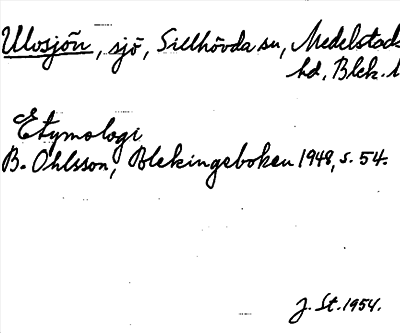 Ulvsjön, sjö, Sillhövda sn, Medelstads
hd, Blek. l
Etymologi
B. Ohlsson, Blekingeboken 1948, s. 54.
J. St. 1954.